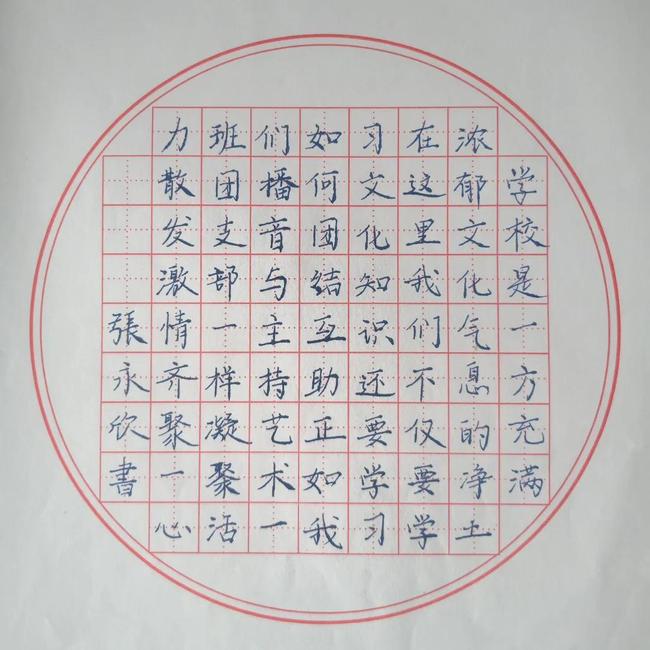 学校是一方充满
浓郁文化气息的净土
在这里我们不仅要学
习文化知识还要学习
如何团结互助正如我
们播音与主持艺术一
班团支部一样凝聚活
力散发激情齐聚一心
張永欣書